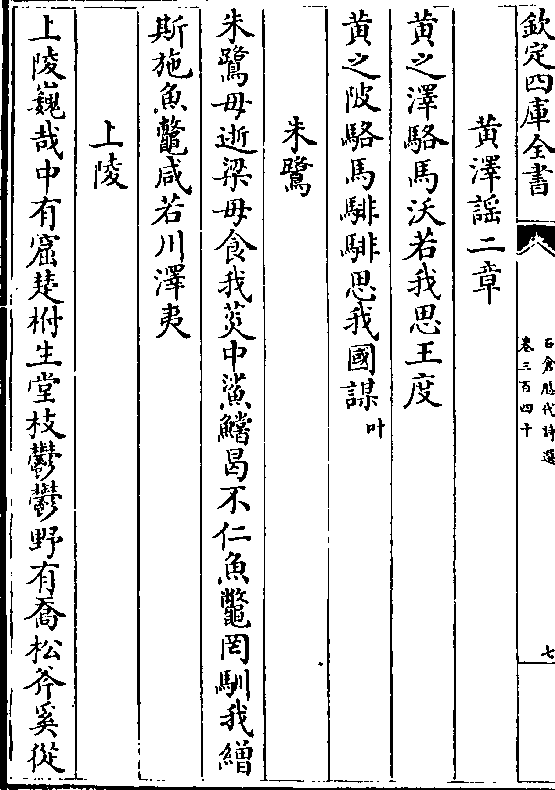 欽定四庫全書
石倉歷代詩選
卷三百四十
七
黄澤謡二章
黄之澤駱馬沃若我思王度
黄之陂駱馬騑騑思我國謀叶
朱鷺
朱鷺毋逝梁毋食我茭中鯊鱨曷不仁魚鼈罔馴我繒
斯施魚鼈咸若川澤夷
上陵
上陵巍哉中有窟楚柎生堂枝鬱鬱野有喬松斧奚從